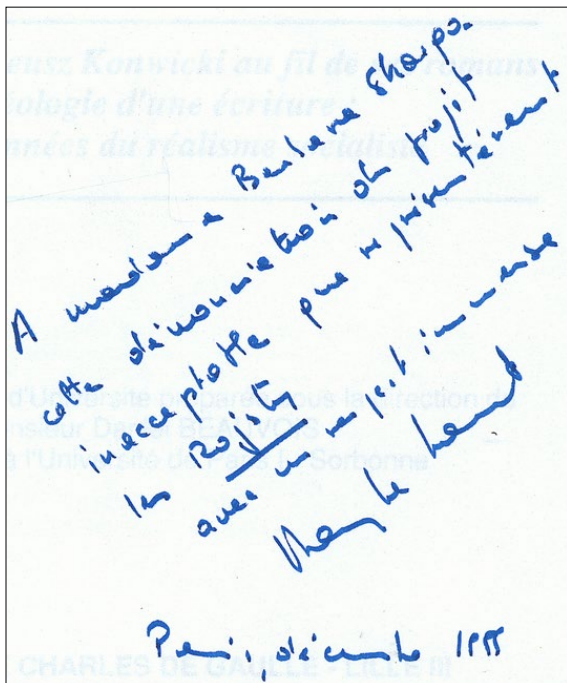 ensz Konwicki au fil de ses romans
éologie d'une écriture :
nnées du réalisme socialiste
A madame Barbara Skarga
cette dénonciation du projet
inacceptable que représentèrent
les
avec un respect immense
d'Université préparée sous la direction de
nsieur Daniel BEAUVOIS
à l'Université de Paris I - Sorbonne
Paris, décembre 1999
CHARLES DE GAULLE - LILLE III